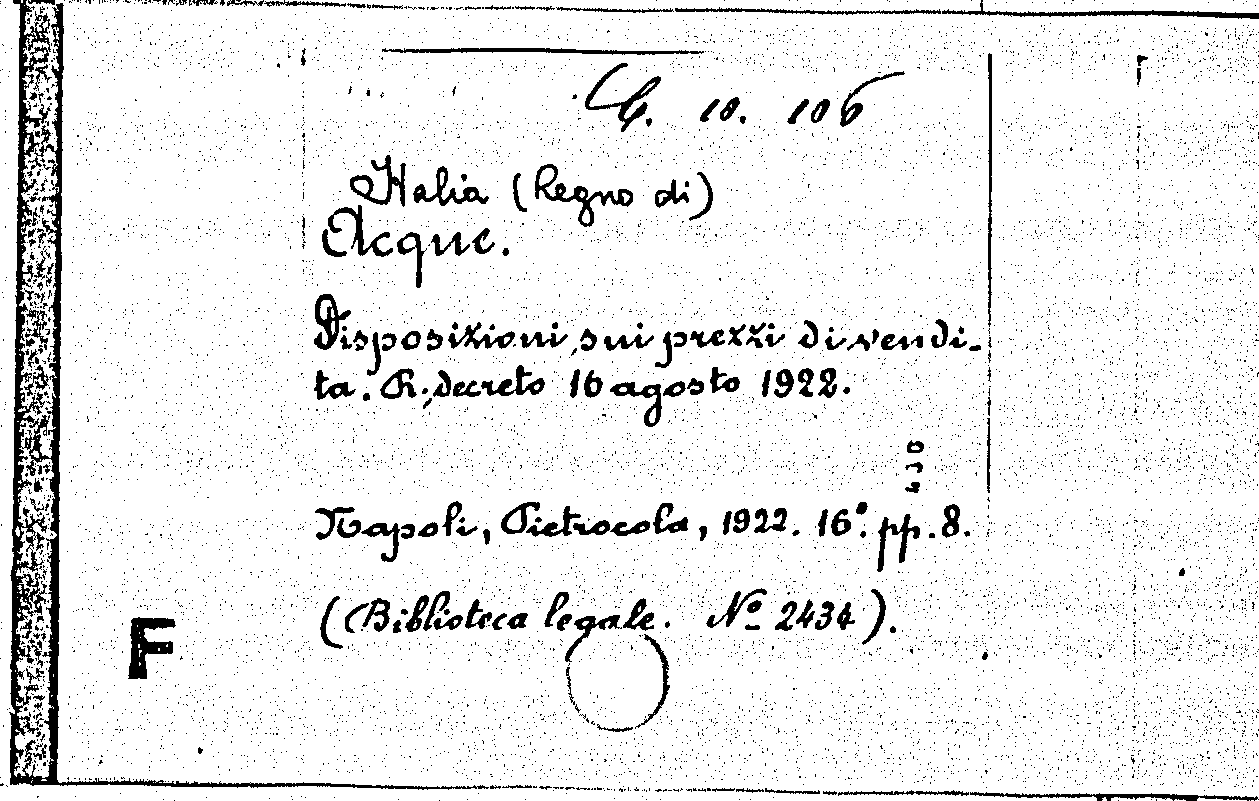 10. 106
Italia (Regno di)
Acque.
Disposizioni sui prezzi di vendi-
ta. R. decreto 16 agosto 1922.
Napoli, Pietrocola, 1922. 16°. pp. 8.
(Biblioteca legale. Nº 2434).
F